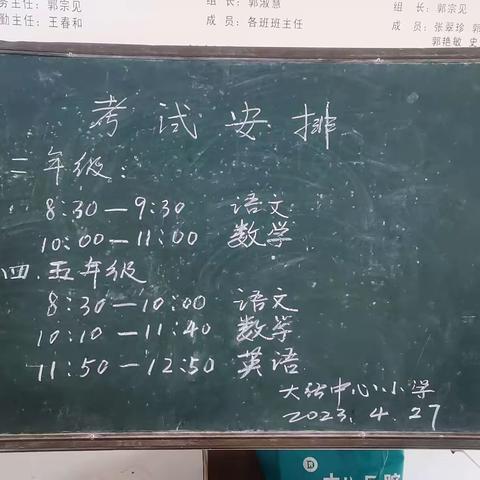 务主任：郭宗见
勤主任：王春和
组 长：郭淑慧
成 员：各班班主任
组 长：郭宗见
成 员：张翠珍 郭
郭艳敏 史
考试安排
二年级：
8:30—9:30 语文
10:00—11:00 数学
四.五年级
8:30—10:00 语文
10:10—11:40 数学
11:50—12:50 英语
大张中心小学
2023.4.27